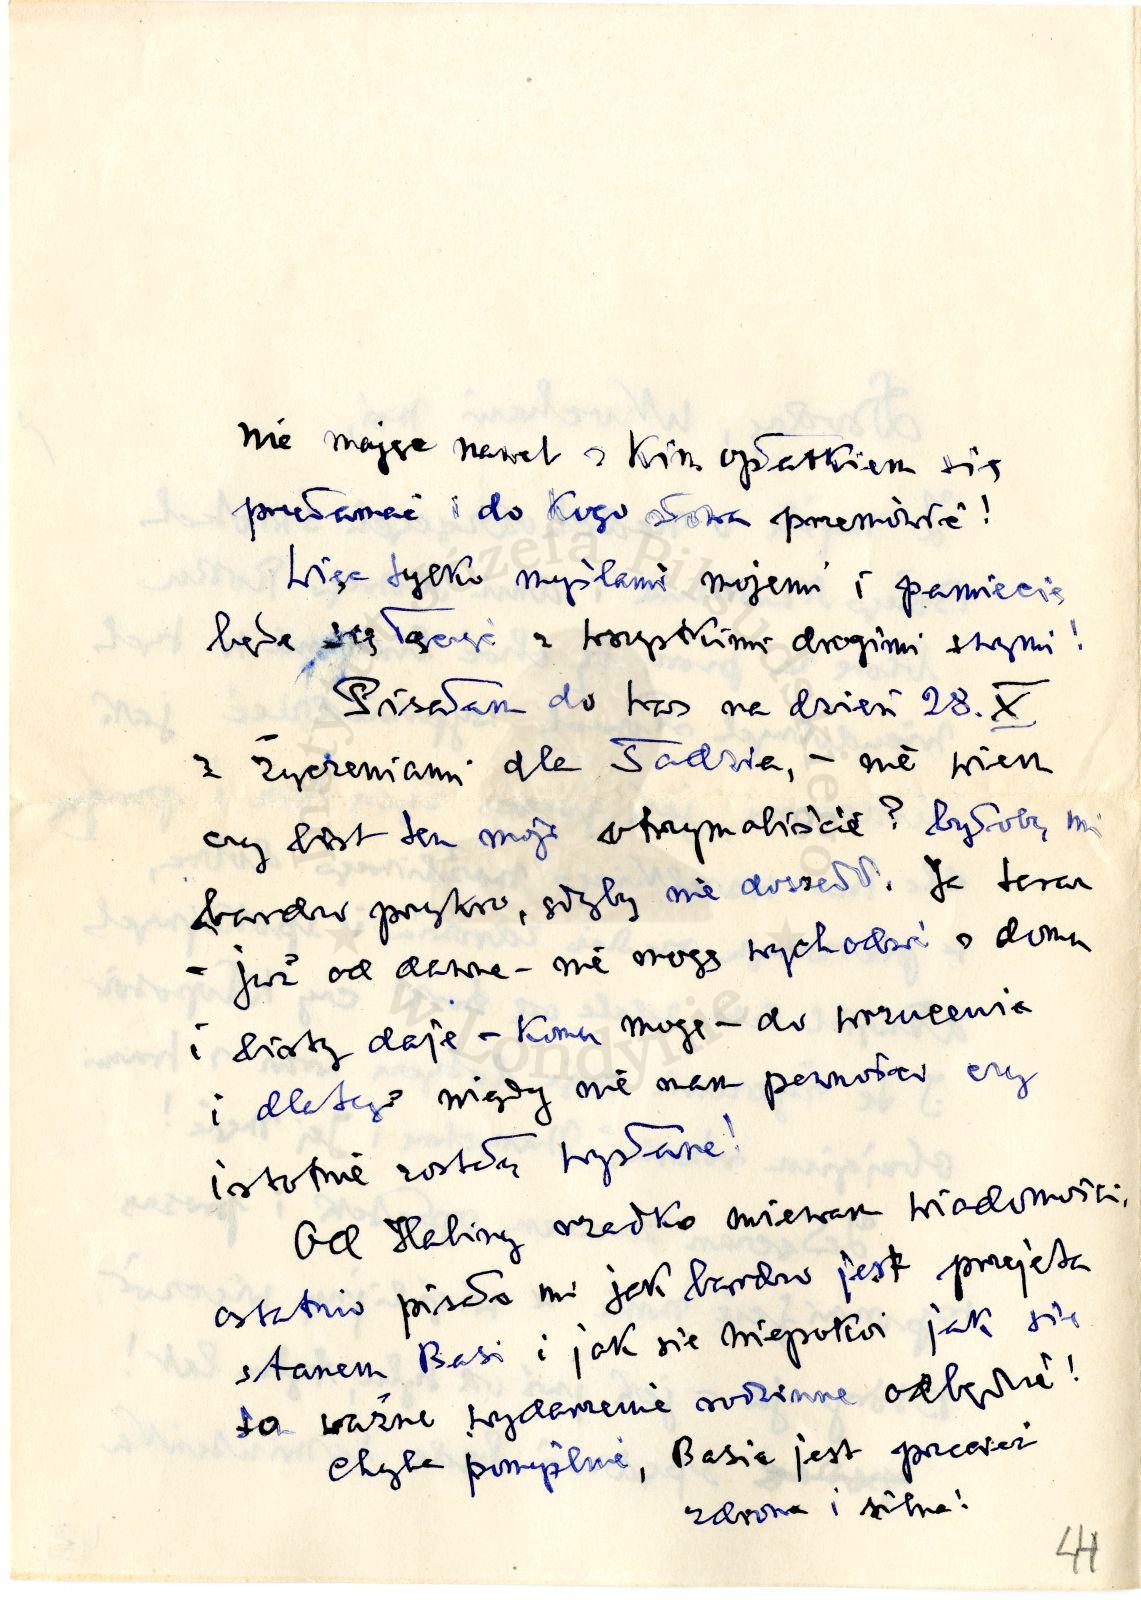 nie mając nawet z kim opłatkiem się
przełamać i do kogo słowa przemówić!
Więc tylko myślami mojemi i pamięcią
będę się łączyć z wszystkimi drogimi swymi!
Pisałam do Was na dzień 28.X
z życzeniami dla Tadzia, – nie wiem
czy list ten mój otrzymaliście? byłoby mi
bardzo przykro, gdyby nie doszedł. Ja teraz
– już od dawna – nie mogę wychodzić z domu
i listy daję – komu mogę – do wrzucenia
i dlatego nigdy nie mam pewności czy
istotnie zostały wysłane!
Od Haliny rzadko miewam wiadomości,
ostatnio pisała mi jak bardzo jest przejęta
stanem Basi i jak się niepokoi jak się
to ważne wydarzenie rodzinne odbędzie!
Chyba pomyślnie, Basia jest przecież
zdrowa i silna!
44
Józefa Piłsudskiego
w Londynie